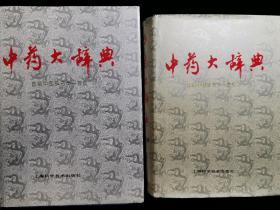 中药大辞典
上海科学技术出版社
中药大辞典
上海科学技术出版社